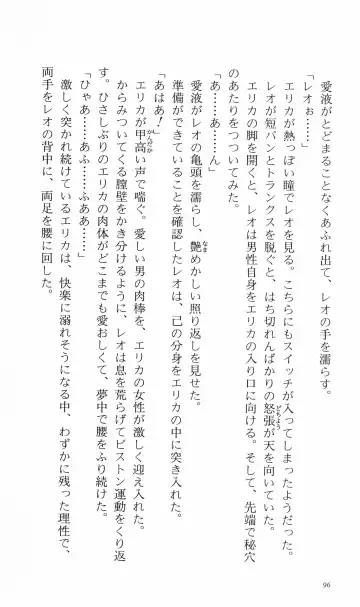 愛液がとどまることなくあふれ出て、レオの手を濡らす。
「レオぉ……」
エリカが熱っぽい瞳でレオを見る。こちらにもスイッチが入ってしまったようだった。
レオが短パンとトランクスを脱ぐと、はち切れんばかりの怒張が天を向いていた。
エリカの脚を開くと、レオは男性自身をエリカの入り口に向ける。そして、先端で秘穴
のあたりをつついてみた。
「あ……あ……ん」
愛液がレオの亀頭を濡らし、艶めかしい照り返しを見せた。
準備ができていることを確認したレオは、己の分身をエリカの中に突き入れた。
「あはあ！」
エリカが甲高い声で喘ぐ。愛しい男の肉棒を、エリカの女性が激しく迎え入れた。
からみついてくる膣壁をかき分けるように、レオは息を荒らげてピストン運動をくり返
す。ひさしぶりのエリカの肉体がどこまでも愛おしくて、夢中で腰をふり続けた。
「ひゃあ……あふ……ふああ……」
激しく突かれ続けているエリカは、快楽に溺れそうになる中、わずかに残った理性で、
両手をレオの背中に、両足を腰に回した。
96